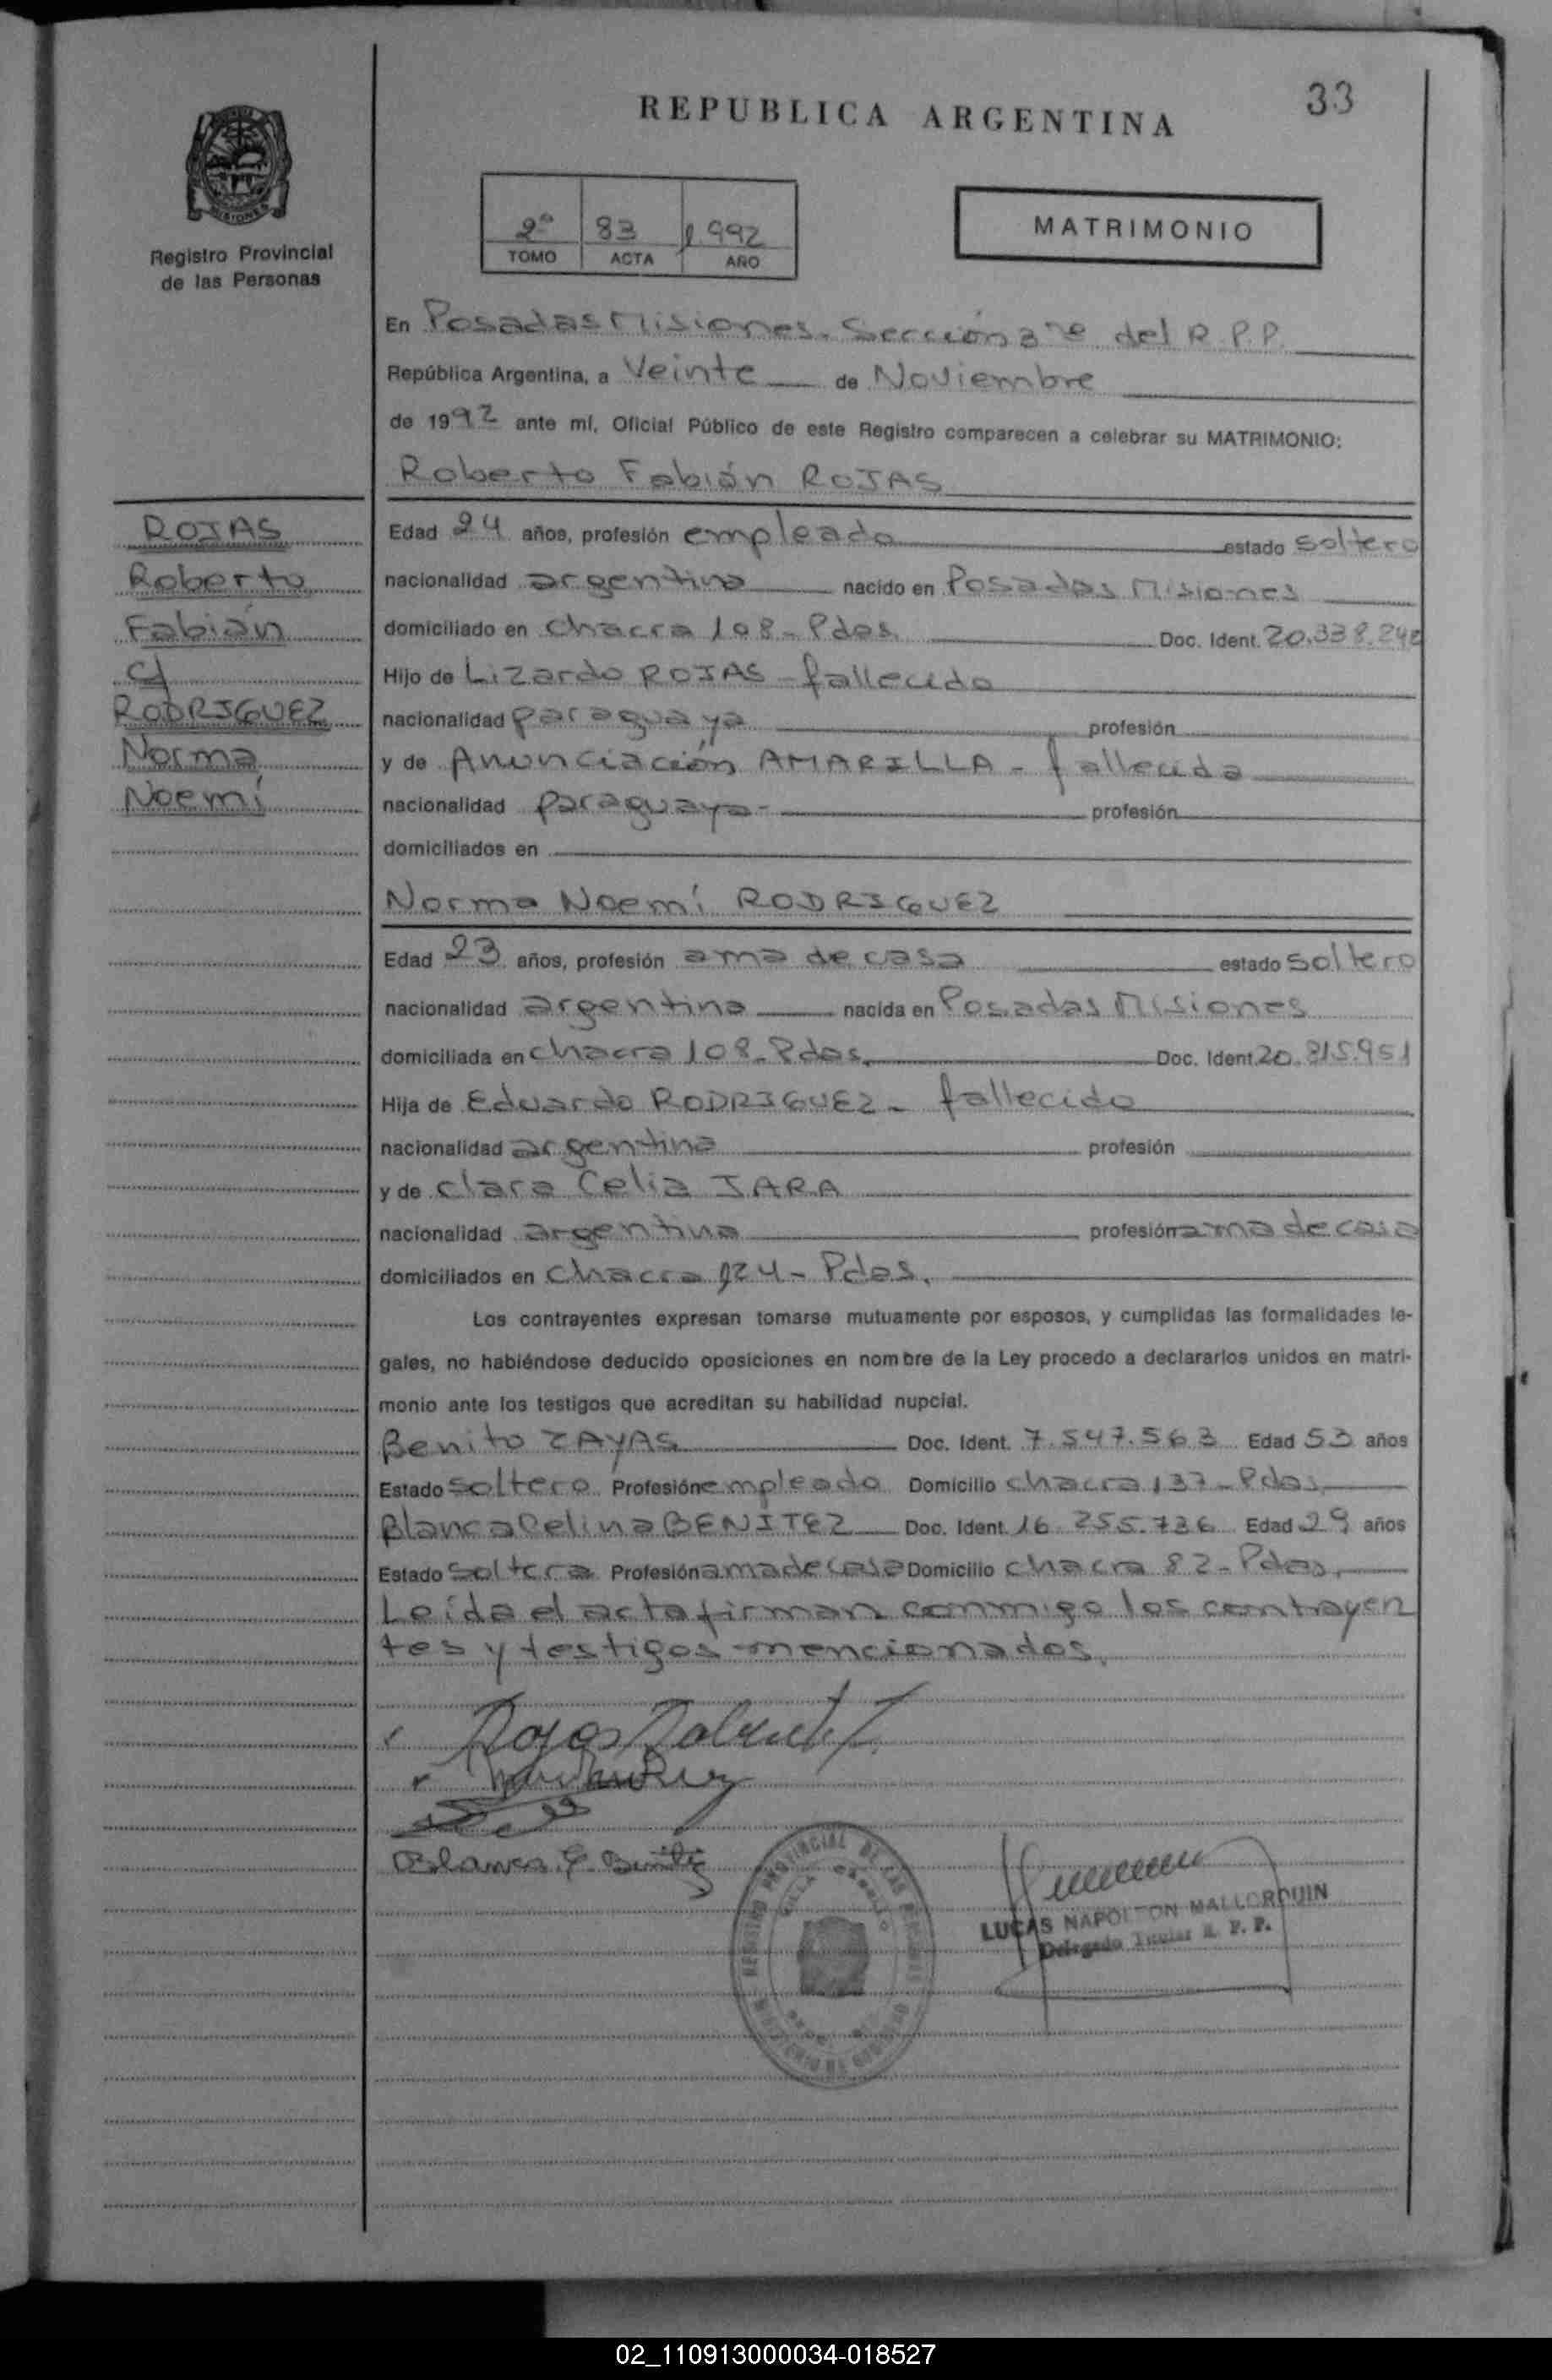 33
REPUBLICA ARGENTINA
MISIONES
Registro Provincial
de las Personas
2º 83 1.992
TOMO ACTA AÑO
MATRIMONIO
En Posadas Misiones. Sección 3ra del R.P.P.
República Argentina, a Veinte de Noviembre
de 1992 ante mí, Oficial Público de este Registro comparecen a celebrar su MATRIMONIO:
Roberto Fabián ROJAS
ROJAS
Roberto
Fabián
c/
RODRIGUEZ
Norma
Noemí
Edad 24 años, profesión empleado estado soltero
nacionalidad argentina nacido en Posadas Misiones
domiciliado en chacra 108 - Pdas. Doc. Ident. 20.338.242
Hijo de Lizardo ROJAS - fallecido
nacionalidad paraguaya profesión
y de Anunciación AMARILLA - fallecida
nacionalidad paraguaya - profesión
domiciliados en
Norma Noemí RODRIGUEZ
Edad 23 años, profesión ama de casa estado soltero
nacionalidad argentina nacida en Posadas Misiones
domiciliada en chacra 108 - Pdas. Doc. Ident. 20.815.951
Hija de Eduardo RODRIGUEZ - fallecido
nacionalidad argentina profesión
y de Clara Celia JARA
nacionalidad argentina profesión ama de casa
domiciliados en Chacra 124 - Pdas.
Los contrayentes expresan tomarse mutuamente por esposos, y cumplidas las formalidades le-
gales, no habiéndose deducido oposiciones en nombre de la Ley procedo a declararlos unidos en matri-
monio ante los testigos que acreditan su habilidad nupcial.
Benito ZAYAS Doc. Ident. 7.547.563 Edad 53 años
Estado soltero Profesión empleado Domicilio chacra 137 - Pdas.
Blanca Celina BENITEZ Doc. Ident. 16.255.736 Edad 29 años
Estado soltera Profesión ama de casa Domicilio chacra 82 - Pdas.
Leída el acta firman conmigo los contrayen
tes y testigos mencionados.
Rojas Roberto F.
Blanca C. Benítez
REGISTRO PROVINCIAL DE LAS PERSONAS
MINISTERIO DE GOBIERNO
LUCAS NAPOLEON MALLORQUIN
Delegado Titular R. P. P.
02_110913000034-018527